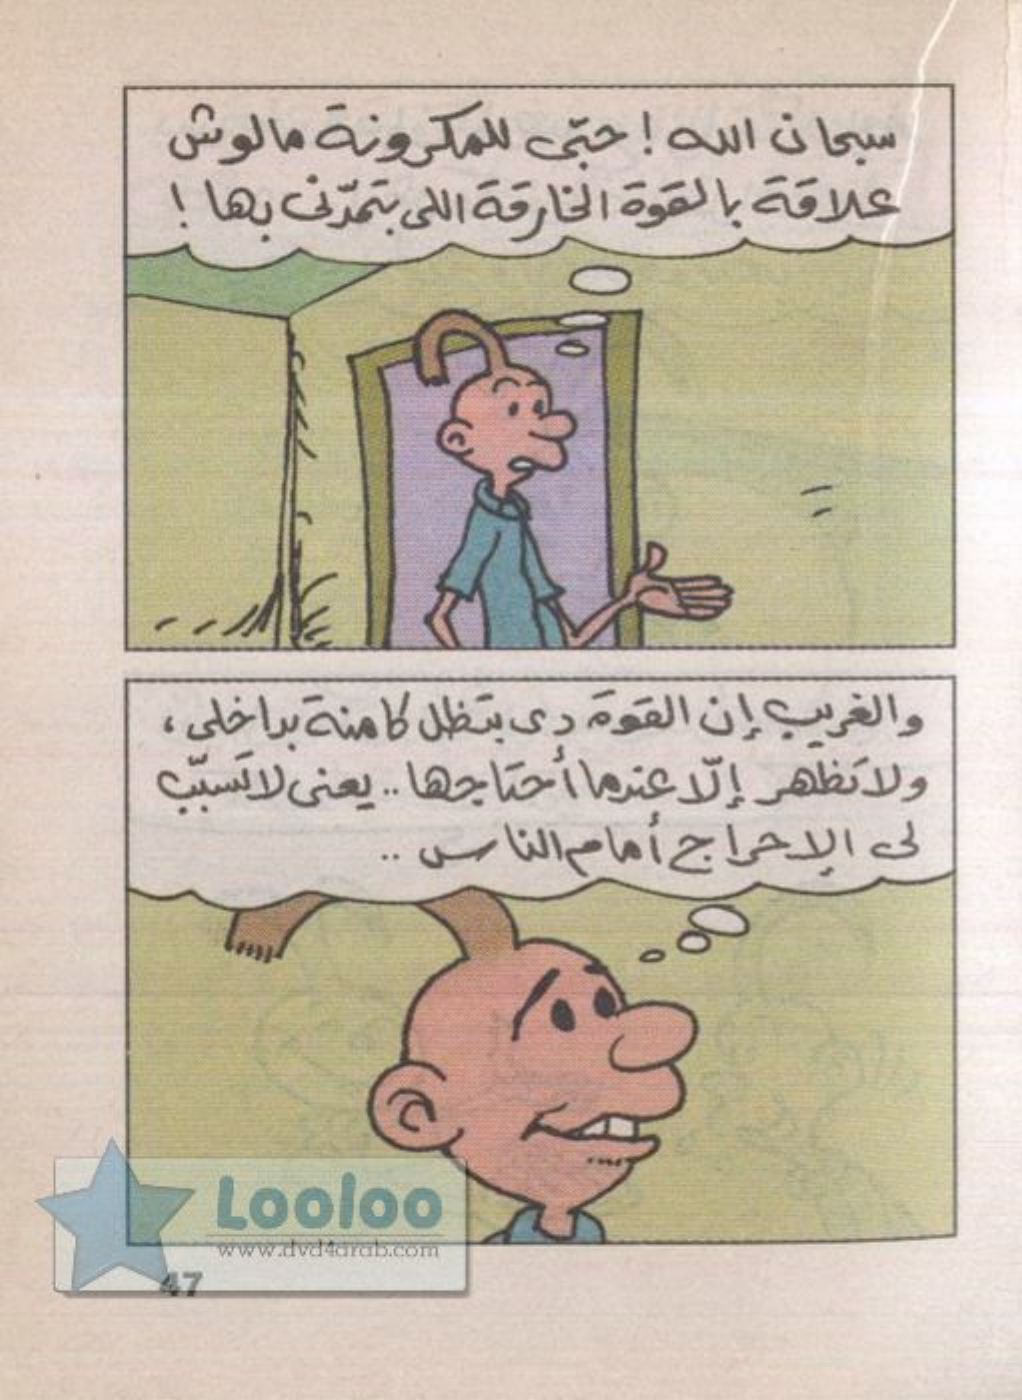 سبحان الله ! حتّى للمكرونة مالوش
علاقة بالقوة الخارقة اللى بتمدّنى بها !
والغريب إن القوة دى بتظل كامنة بداخلى ،
ولا تظهر إلّا عندما أحتاجها .. يعنى لا تسبّب
لى الإحراج أمام الناس ..
Looloo
www.dvd4arab.com
47